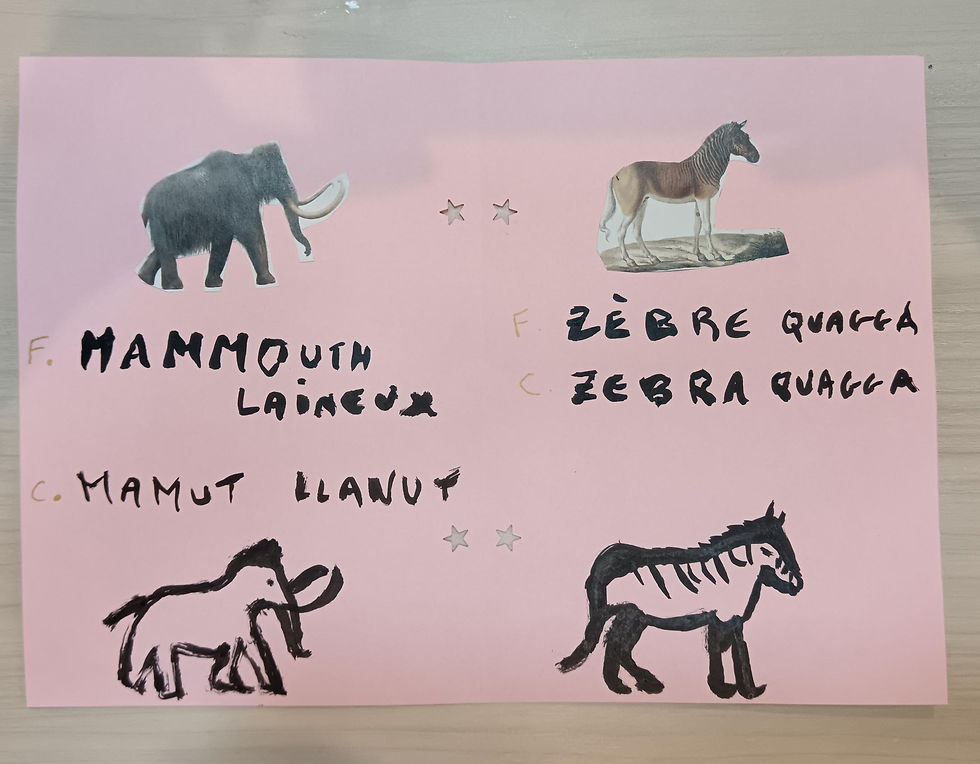 F. MAMMOUTH
LAINEUX
C. MAMUT LLANUT
F. ZÈBRE QUAGGA
C. ZEBRA QUAGGA